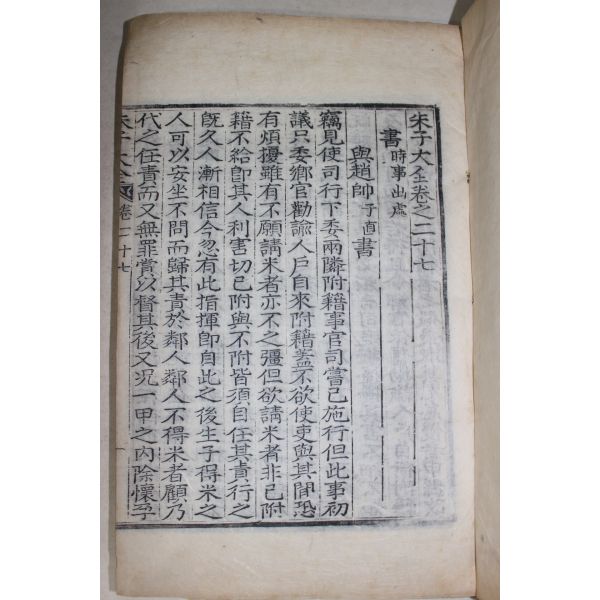 朱子大全卷之二十七
書 時事出處
與趙帥 子直 書
竊見使司行下委兩隣附籍事官司嘗已施行但此事初
議只委鄉官勸諭人戶自來附籍蓋不欲使吏與其間恐
有煩擾雖有不願請米者亦不之彊但欲請米者非已附
籍不給卽其人利害切已附與不附皆須自任其責行之
旣久人漸相信今忽有此指揮卽自此之後生子得米之
人可以安坐不問而歸其責於鄰人鄰人不得米者顧乃
代之任責而又無罪賞以督其後又况一甲之內除懷孕
朱子大全 卷二十七